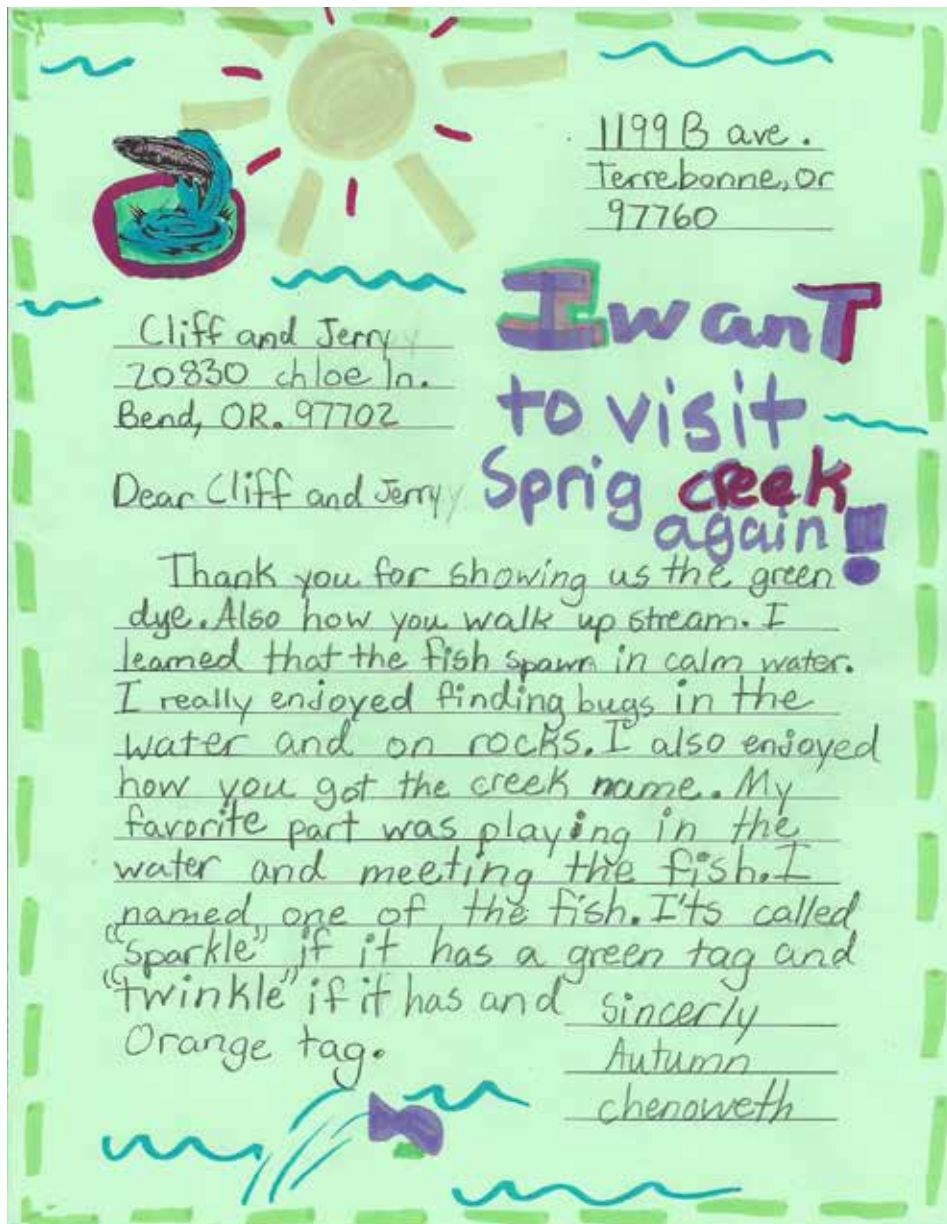 1199 B ave.
Terrebonne, Or
97760
Cliff and Jerry
20830 chloe ln.
Bend, OR. 97702
I want
to visit
Sprig creek
again!
Dear Cliff and Jerry
Thank you for showing us the green
dye. Also how you walk up stream. I
learned that the fish spawn in calm water.
I really enjoyed finding bugs in the
water and on rocks. I also enjoyed
how you got the creek name. My
favorite part was playing in the
water and meeting the fish. I
named one of the fish. I'ts called
"Sparkle" if it has a green tag and
"twinkle" if it has and
Orange tag.
Sincerly
Autumn
chenoweth